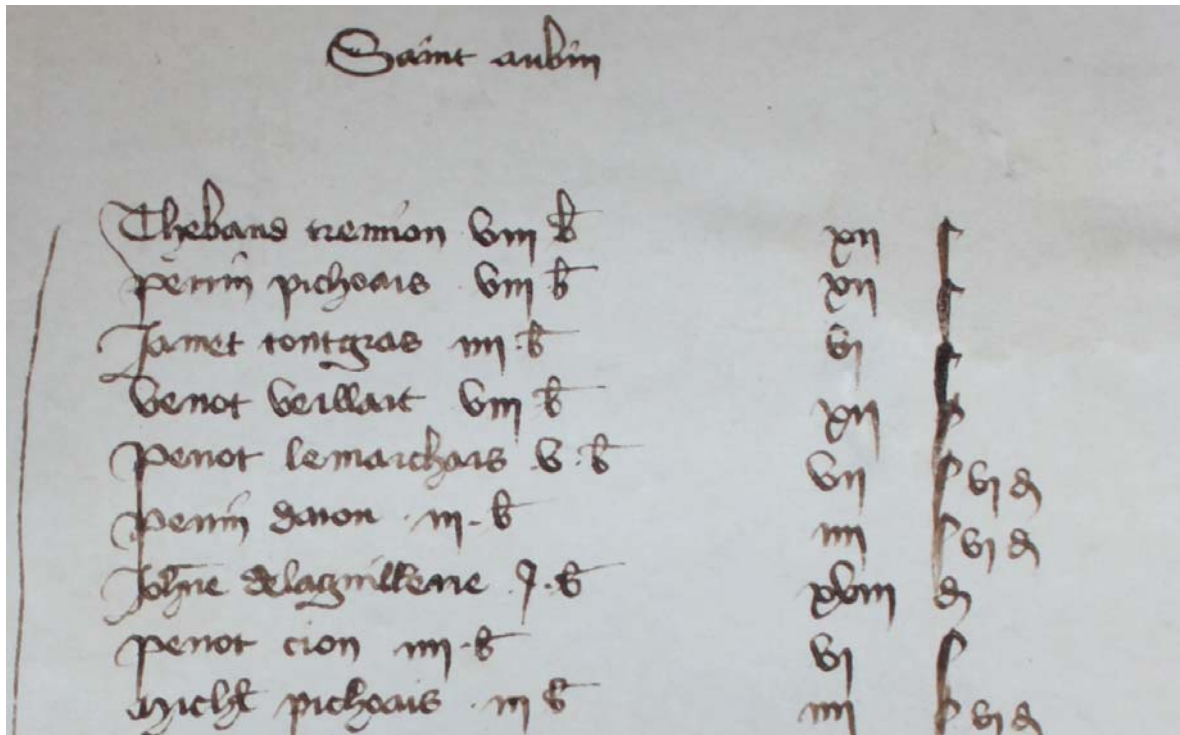 Saint aubin
Thebaud tremion viii b xii s
perrin pichoais viii b xii s
Jamet tontgras iiii b vi s
venot veillart viii b xii s
penot lemarchais v b vii s vi d
perrin daron iii b iiii s vi d
Johne delaguillerie j b xviii d
penot cion iiii b vi s
Michl pichoais iii b iiii s vi d